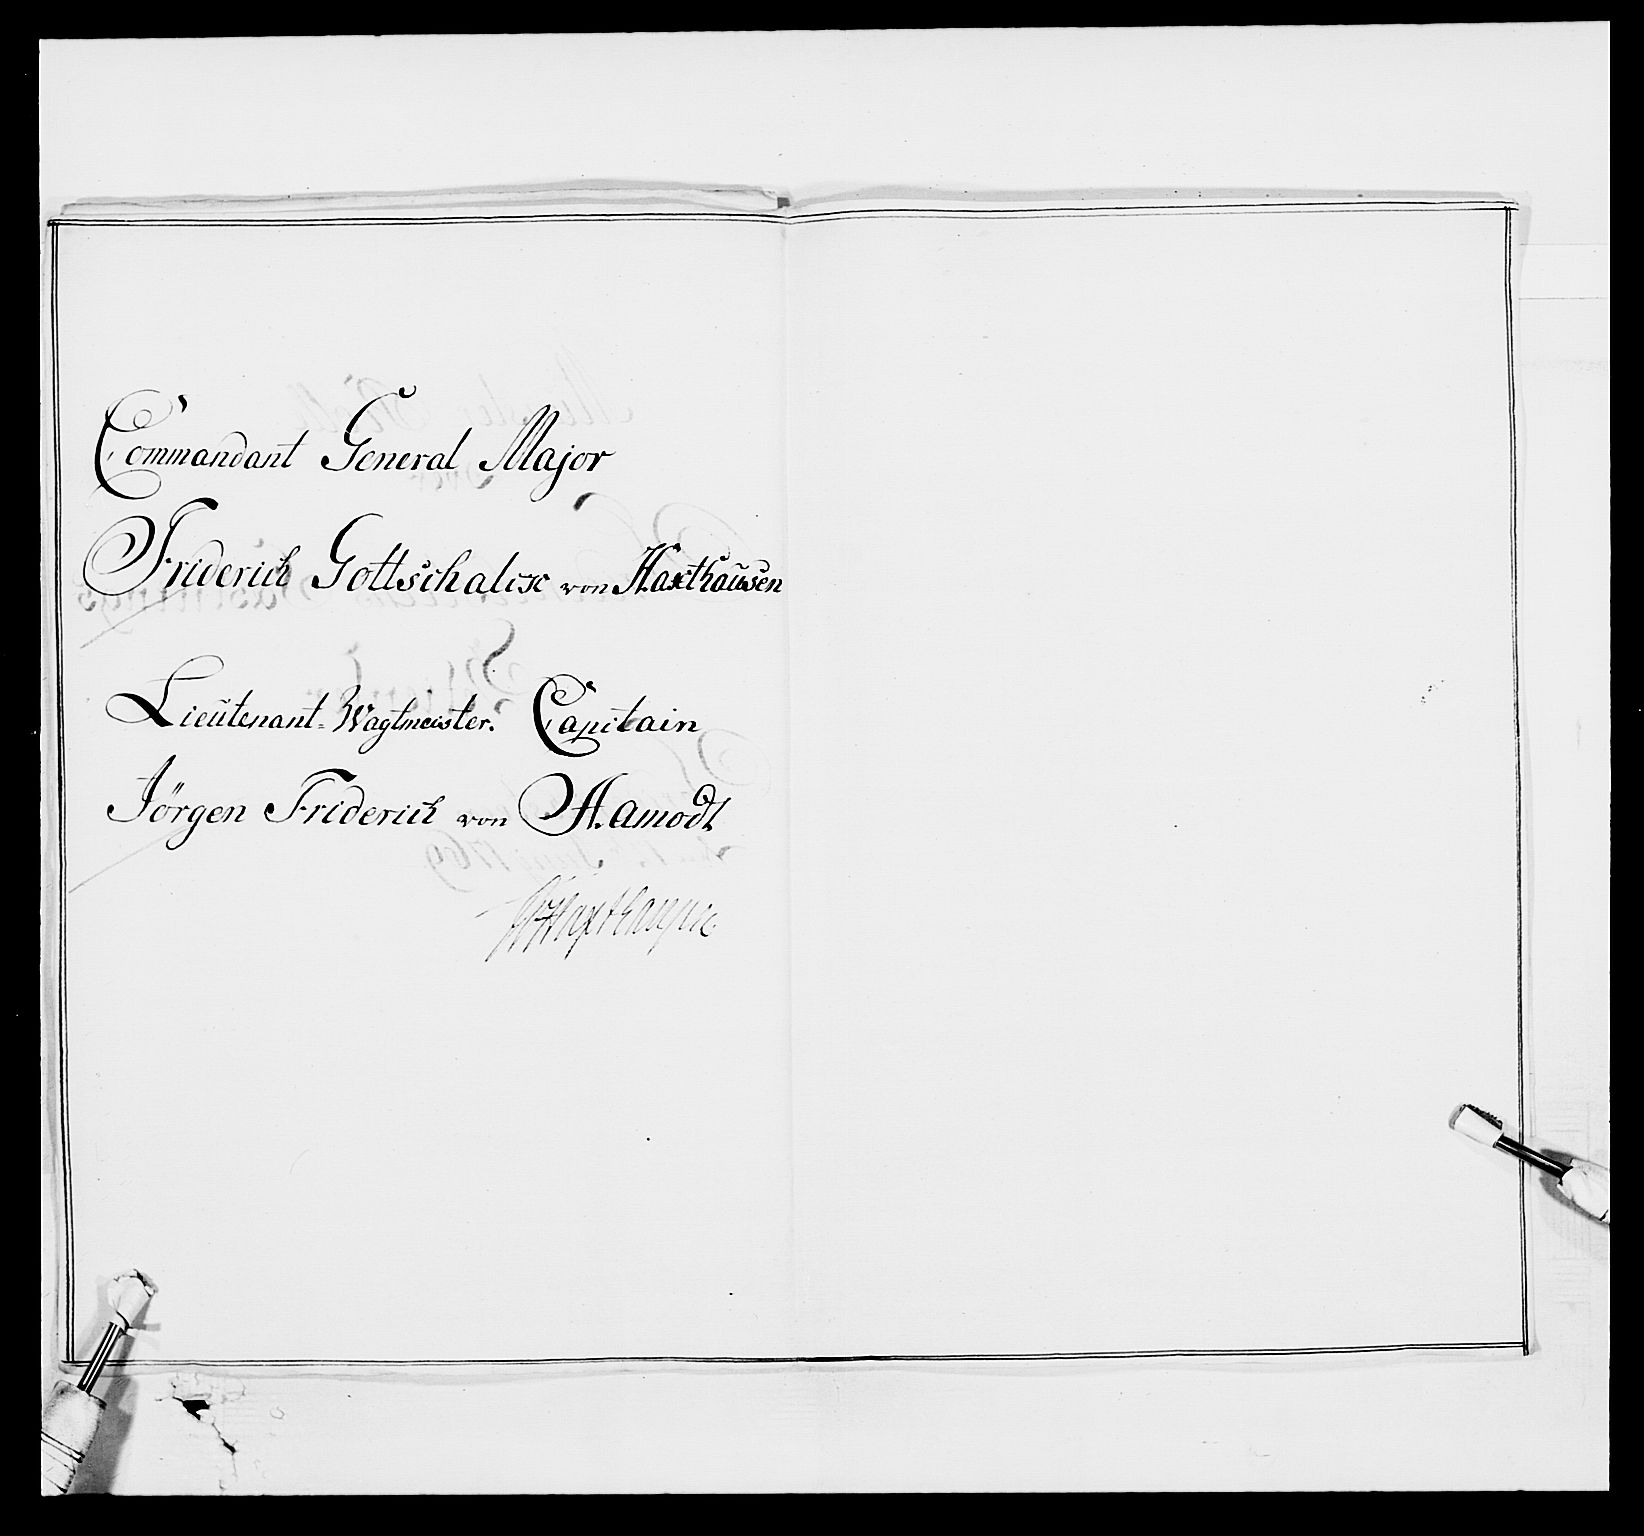 Commandant General Major
Friderich Gottschalck von Haxthaŭsen
Lieŭtenant-Wagtmeister. Capitain
Jörgen Friderich von Hamodt
Haxthausen